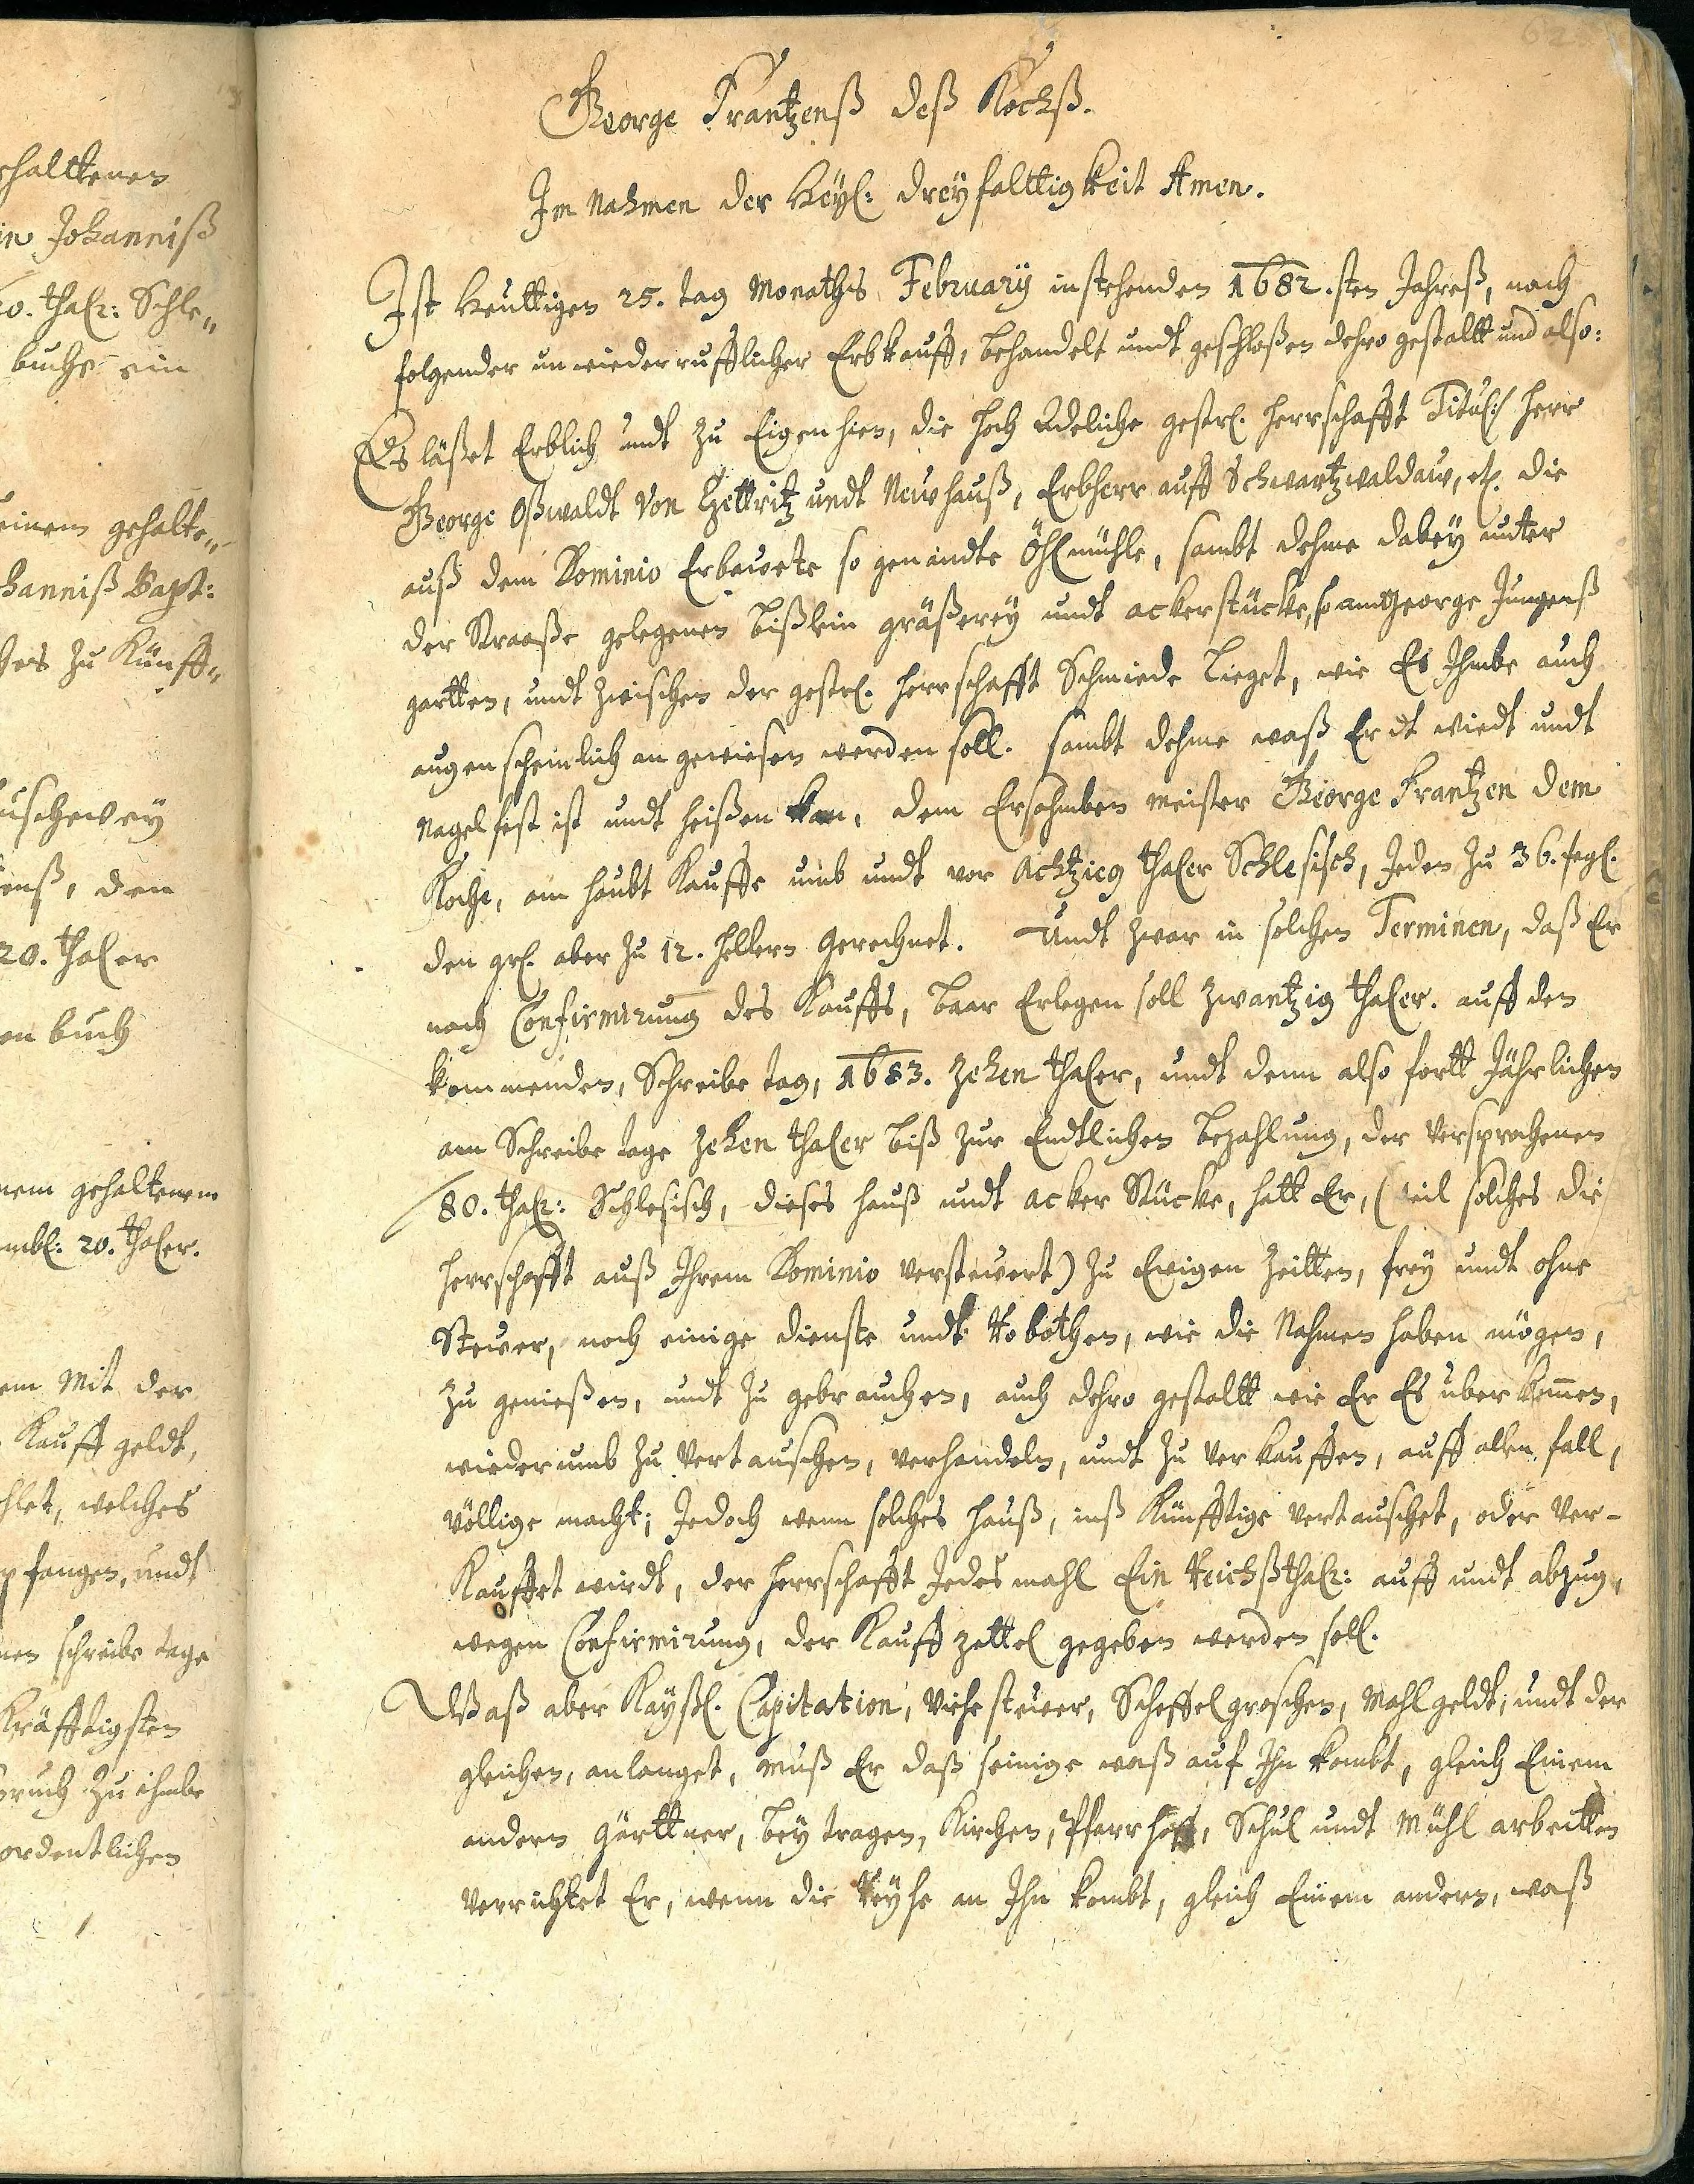 62
halttenen
in Johanniß
20. thalr: Schle„
buchs ein
einem gehalte„
hanniß Bapt:
hes zu Künff„
uschewey
enß, den
20. thaler
en buch
nem gehaltenem
mbl: 20. thaler.
em Mit der
Kauff geldt,
hlet, welches
pfangen, undt
nen schreibe tage
Kräfftigsten
pruch zu ihmbe
ordentlichen
George Frantzenß deß Kochß.
Im Nahmen der Heyl: dreyfalttigkeit Amen.
Ist heuttigen 25. tag Monaths February instehenden 1682.sten Jahreß, nach
folgender unwiederrufflicher Erbkauff, behandelt undt geschloßen dehro gestallt und also:
Es läßet Erblich undt zu Eigen hien, die Hoch Adeliche gestr. Herrschafft Titul: Herr
George Oßwaldt Von Tzettritz undt Neuhauß, Erbherr auff Schwartzwaldaw, etc. die
auß dem Dominio Erbawete so genandte Öhlmühle, sambt dehme dabey unter
der Straaße gelegenen bißlein gräßerey undt ackerstücke, so am George Jungenß
gartten, undt zwischen der gestr. Herrschafft Schmiede lieget, wie Es Ihmbe auch
augenscheinlich angewiesen werden soll. sambt dehme waß Erdt wiedt undt
Nagelfest ist undt heißen kan, dem Ersahmben meister George Frantzen dem
Koche, am haubt Kauffe umb undt vor Achtzieg thaler Schlesisch, Jeden zu 36. segl.
den grl. aber zu 12. hellern gerechnet. Undt zwar in solchen Terminen, daß Er
nach Confirmirung des Kauffs, baar Erlegen soll zwantzig thaler. auff den
kommenden, Schreibe tag, 1683. zehen thaler, undt denn also fortt Jährlichen
am Schreibe tage zehen thaler biß zur Endtlichen bezahlung, der versprochenen
80. thalr: Schlesisch, dieses hauß undt acker Stücke, hatt Er, (weil solches die
Herrschafft auß Ihrem Dominio versteuert) zu Ewigen Zeitten, frey undt ohne
Steuer, noch einige dienste undt Robothen, wie die Nahmen haben mögen,
zu genießen, undt zu gebrauchen, auch dehro gestallt wie Er Es uberkom̄en,
wiederumb zu vertauschen, verhandeln, undt zu verkauffen, auff allen fall,
völlige macht; Jedoch wenn solches hauß, inß Künfftige vertauschet, oder ver-
Kauffet wirdt, der Herrschafft Jedes mahl Ein Reichßthalr: auff undt abzug,
wegen Confirmirung, der Kauff zettel gegeben werden soll.
Waß aber Kayßl. Capitation, Viehe steuer, Scheffelgroschen, Mahlgeldt, undt der
gleichen, anlanget, muß Er daß seinige waß auf Ihn kombt, gleich Einem
andern gärttner, beytragen, Kirchen, Pfarrhoff, Schul undt Mühl arbeitten
verrichtet Er, wenn die Reyhe an Ihn kombt, gleich Einem andern, waß